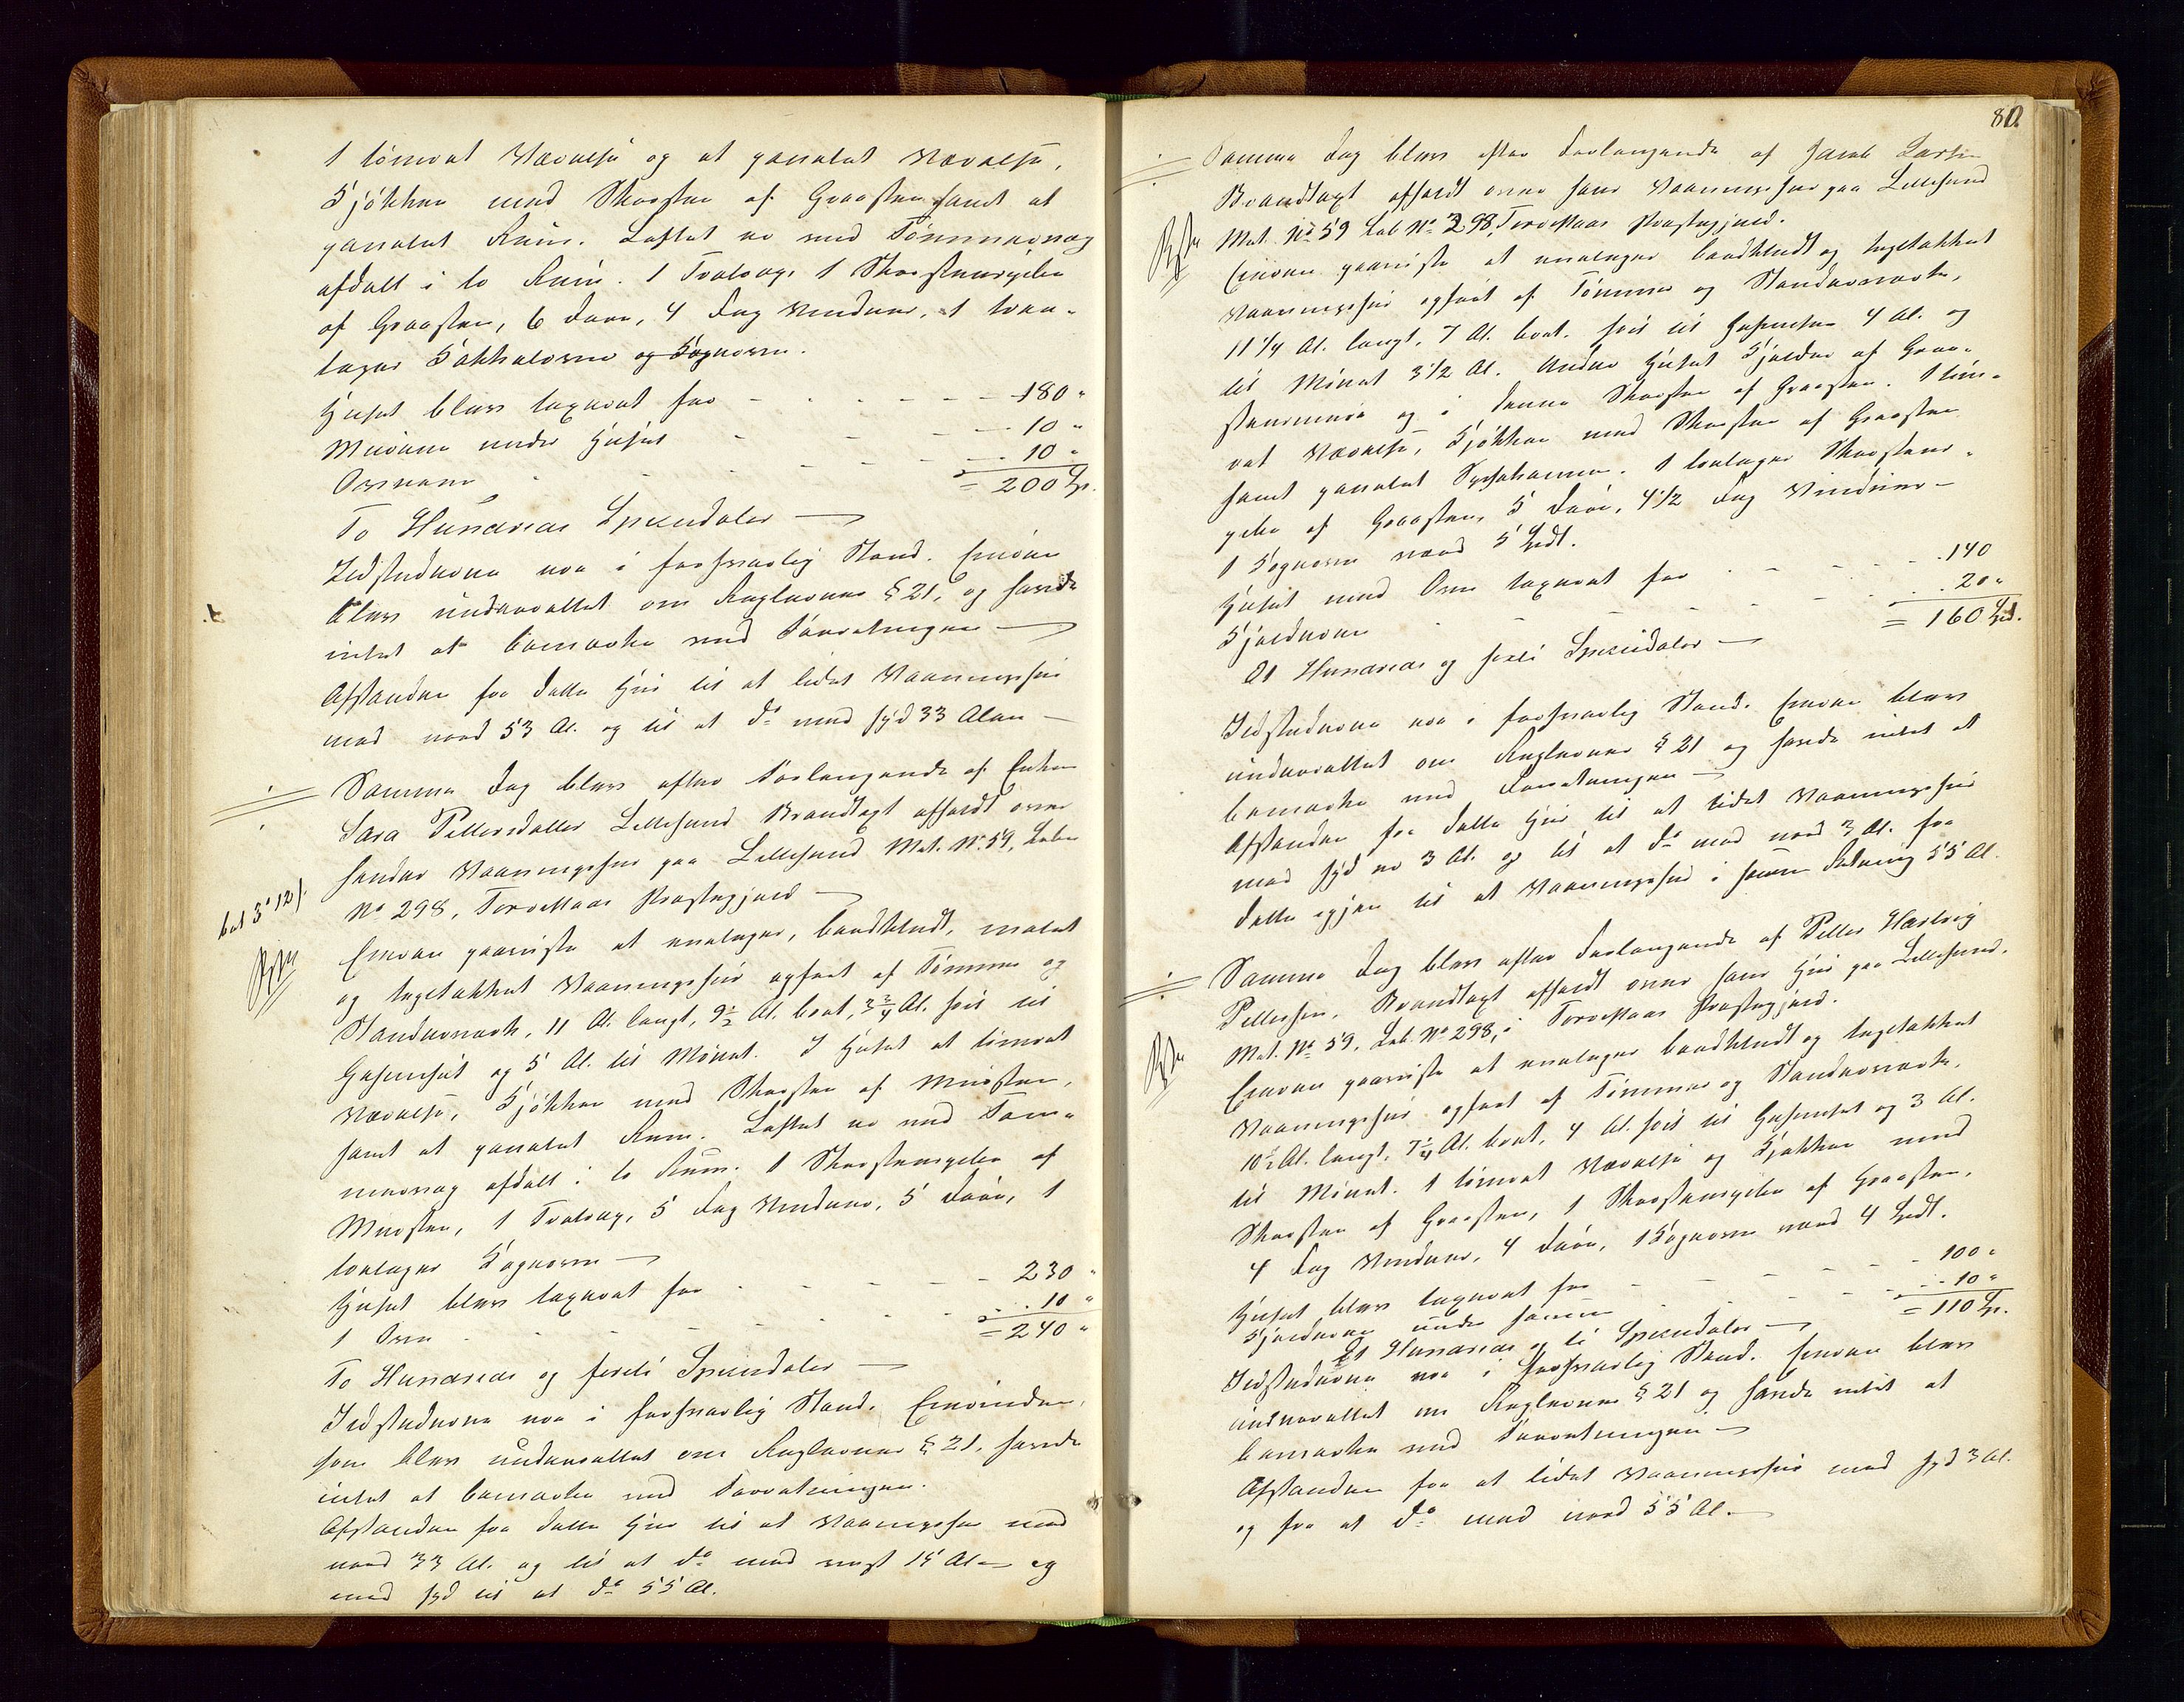 1 tømret Værelse og et panelet Værelse,
Kjøkken med Skorsten af Graasten samt et
panelet Rum. Loftet er med Tømmervæg
afdelt i to Rum. 1 Tralvap. 1 Skorstenspibe
af Graasten, 6 Døre, 4 Fag Vinduer, 1 tree-
tages Kakkelovn og Kogeovn.
Huset blev taxeret for - - - - - 180 "
Murene under Huset - - - - 10 "
Ovnene - - - - - 10 "
= 200 Sp.
To Hundrede Speciedaler
Ildstederne var i forsvarlig Stand. Eieren
blev underrettet om Reglernes § 21, og havde
intet at bemærke ved Forretningen
Afstanden fra dette Huus til et lidet Vaaningshuus
mod nord 53 Al. og til et do mod syd 33 Alen
Samme Dag blev efter Forlangende af Enken
Sara Pettersdatter Lillesund Brandtaxt afholdt over
hendes Vaaningshuus paa Lillesund Mat. No 59, Løbe
No 298, Torvestad Præstegjeld
bet 3 12/.
Eieren paaviste et enetages, bordklædt, malet
og tegltækket Vaaningshuus opført af Tømmer og
Standerværk, 11 Al. langt, 9½ Al. bredt, 3¾ Al. høit til
Gesimset og 5 Al. til Mønet. I Huset et tømret
Værelse, Kjøkken med Skorsten af Mursten,
samt et panelet Rum. Loftet er med Tøm-
mervæg afdelt i to Rum. 1 Skorstenspibe af
Mursten, 1 Tralvap, 5 Fag Vinduer, 5 Døre, 1
toetages Kogeovn
Huset blev taxeret for - - - - - 230 "
1 Ovn - - - - - 10 "
= 240 "
To Hundrede og fireti Speciedaler
Ildstederne var i forsvarlig Stand. Eierinden,
som blev underrettet om Reglernes § 21, havde
intet at bemærke ved Forretningen.
Afstanden fra dette Huus til et Vaaningshuus mod
nord 33 Al. og til et do mod vest 15 Al og
mod syd til et do 55 Al.
80.
Samme Dag blev efter Forlangende af Jacob Larsen
Brandtaxt afholdt over hans Vaaningshuus paa Lillesund
Mat. No 59 Løb No 298, Torvestad Præstegjeld.
Eieren paaviste et enetages bordklædt og tegltækket
Vaaningshuus opført af Tømmer og Standerværk,
11 1/4 Al. langt, 7 Al. bredt, høit til Gesimsen 4 Al. og
til Mønet 3 1/2 Al. Under Huset Kjelder af Graa-
stensmuur og i denne Skorsten af Graasten. 1 tøm-
ret Værelse, Kjøkken med Skorsten af Graasten
samt panelet Spisekammer. 1 toetages Skorstens-
pibe af Graasten, 5 Døre, 4 1/2 Fag Vinduer
1 Kogeovn værd 5 Spdl.
Huset med Ovn taxeret for - - - - 140
Kjelderen - - - - 20 "
= 160 Spd.
Et Hundrede og sexti Speciedaler
Ildstederne var i forsvarlig Stand. Eieren blev
underrettet om Reglernes § 21 og havde intet at
bemærke ved Forretningen
Afstanden fra dette Huus til et lidet Vaaningshuus
mod syd er 3 Al. og til et do mod nord 3 Al. fra
dette igjen til et Vaaningshuus i samme Retning 55 Al.
Samme Dag blev efter Forlangende af Petter Hartvig
Pettersen, Brandtaxt afholdt over hans Huus paa Lillesund,
Mat. No 59, Løb. No 298, i Torvestad Præstegjeld.
Eieren paaviste et enetages bordklædt og tegltækket
Vaaningshuus opført af Tømmer og Standerværk.
10½ Al. langt, 7¼ Al. bredt, 4 Al. høit til Gesimset og 3 Al.
til Mønet. 1 tømret Værelse og Kjøkken med
Skorsten af Graasten, 1 Skorstenspibe af Graasten,
4 Fag Vinduer, 4 Døre, 1 Kogeovn værd 4 Spdl.
Huset blev taxeret for - - - - 100 "
Kjelderen under samme - - - - 10 "
= 110 Sp.
Et Hundrede og ti Speciedaler
Ildstederne var i forsvarlig Stand. Eieren blev
underrettet om Reglernes § 21 og havde intet at
bemærke ved Forretningen
Afstanden fra et lidet Vaaningshuus mod syd 3 Al.
og fra et do mod nord 55 Al.